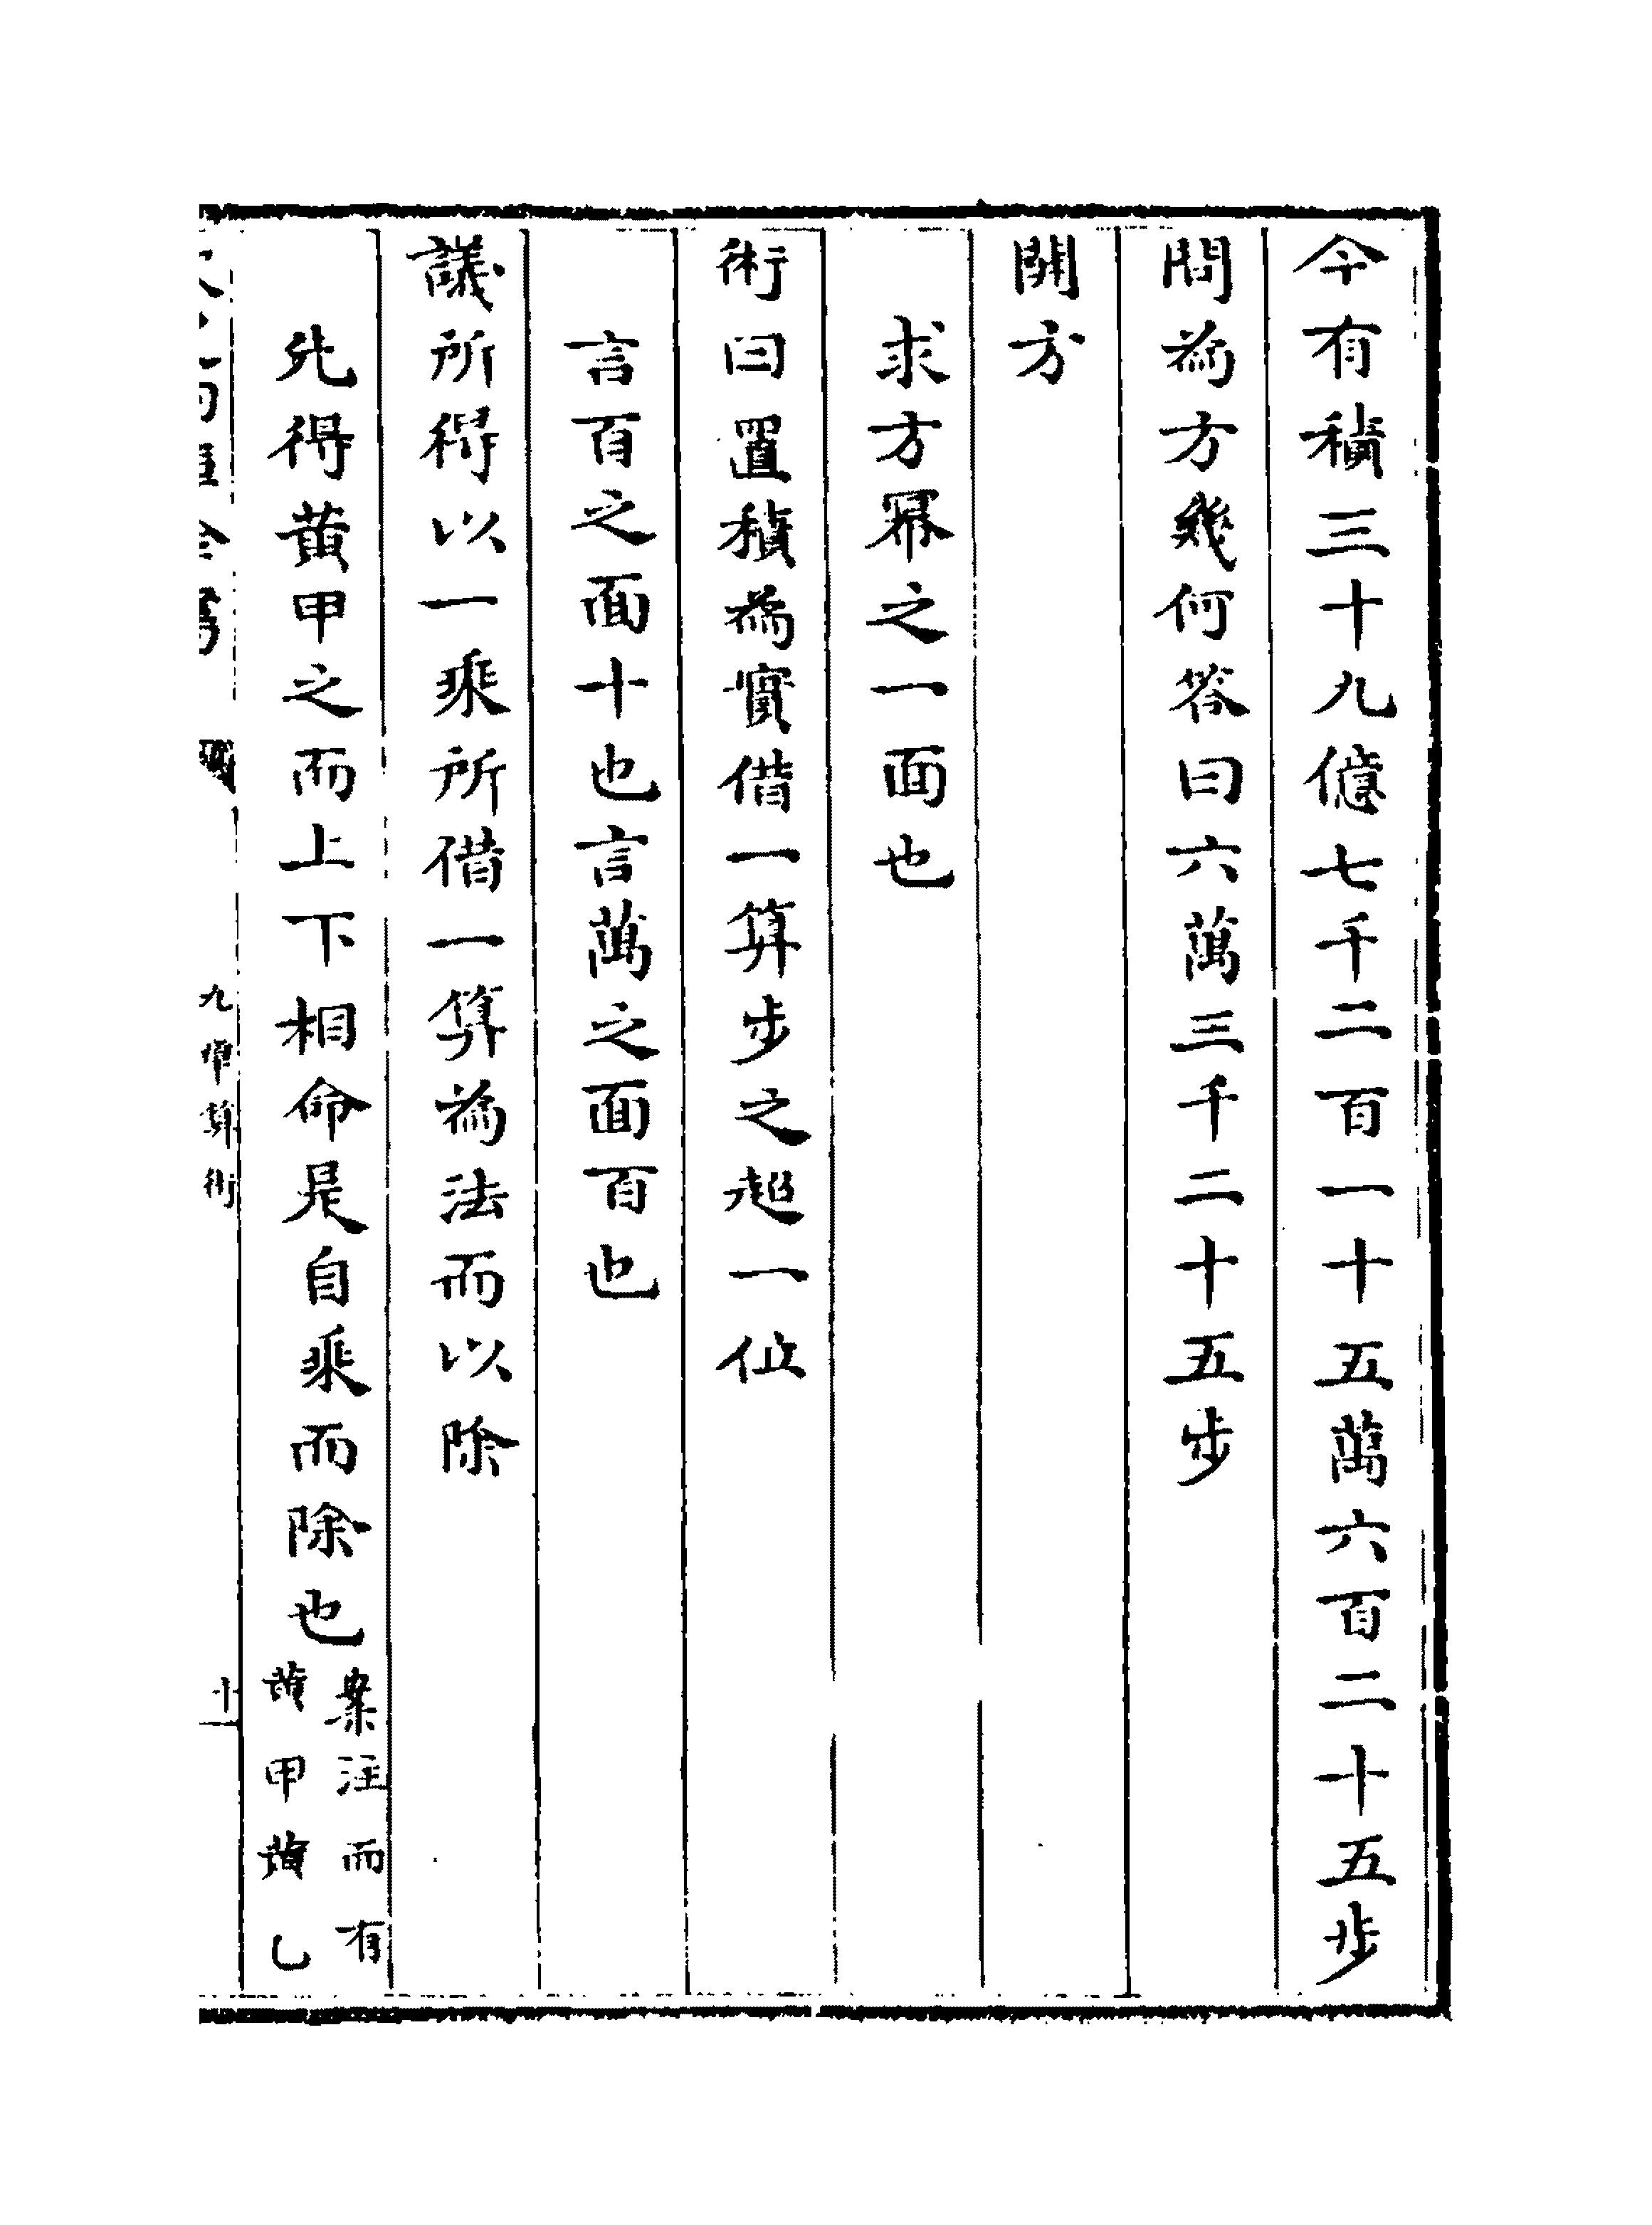 今有積三十九億七千二百一十五萬六百二十五步
問為方幾何答曰六萬三千二十五步
開方
求方冪之一面也
術曰置積為實借一算步之超一位
言百之面十也言萬之面百也
議所得以一乘所借一算為法而以除
先得黄甲之而上下相命是自乘而除也
案注而有
黄甲黄乙
九章算術
十一